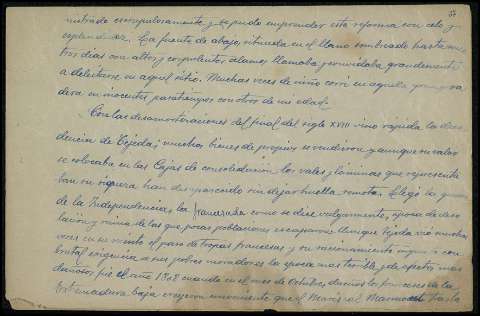 57
nistrado escrupulosamente, y se pudo emprender esta reforma con celo y
esplendidez. La fuente de abajo, situada en el llano sombreado hasta nues
tros días con altos y corpulentos álamos, llamaba y convidaba grandemente
a deleitarse en aquel sitio. Muchas veces de niño corrí en aquella
dera en inocentes pasatiempos con otros de mi edad.
Con las desamortizaciones del final del siglo XVIII vino rápida la deca
dencia de Tejeda; muchos bienes de propios se vendieron y aunque su valor
se colocaba en las Cajas de consolidación los vales y láminas que representa
ban su riqueza han desaparecido sin dejar huella remota. Llegó la guerra
de la Independencia, la francesada como se dice vulgarmente, época de deso
lación y ruina de las que pocas poblaciones escaparon. Aunque Tejeda vió muchas
veces en su recinto el paso de tropas francesas y su racionamiento impuso con
brutal exigencia a sus pobres moradores la época mas terrible y de efectos mas
dañosos fue el año 1808 cuando en el mes de Octubre dueños los franceses de la
Extremadura baja creyeron conveniente que el Mariscal hasta